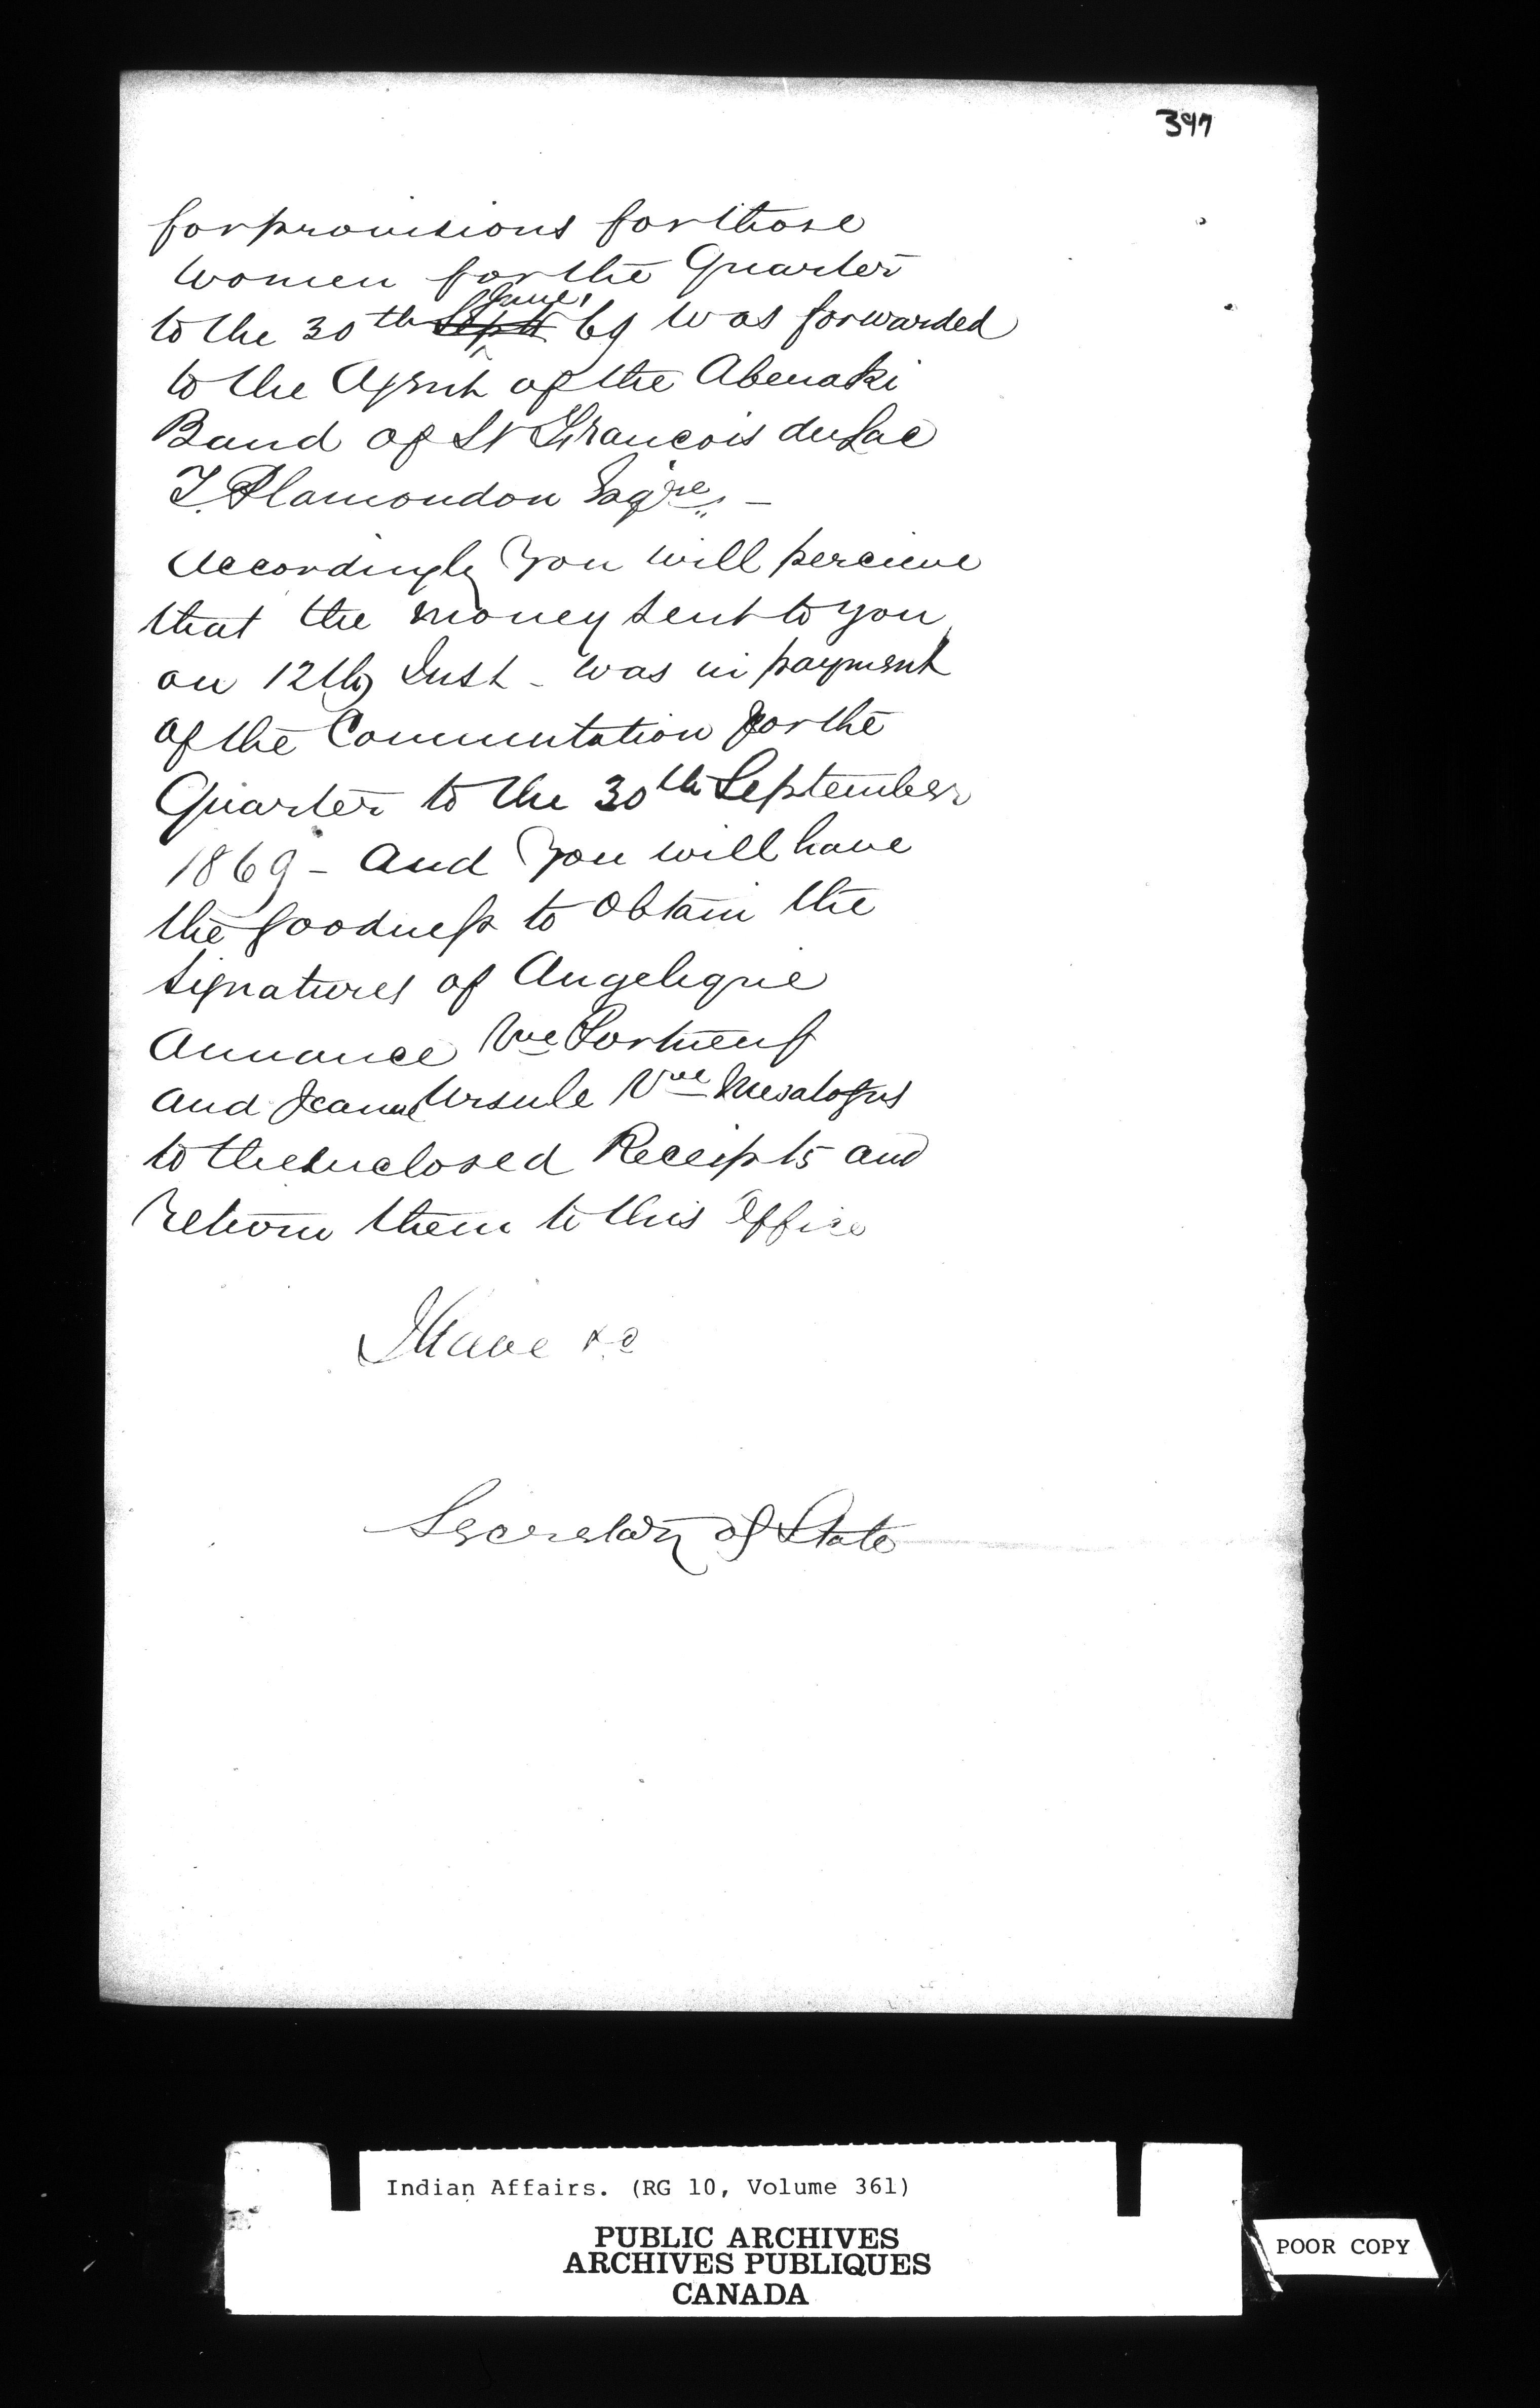 397
for provisions for those
women for the Quarter
June,
to the 30th Sept 69 was forwarded
to the Agent of the Abenaki
Band of St Francois du Lac
I. Plamondon Esqre, —
Accordingly You will percieve
that the money sent to you
on 12th Inst - was in payment
of the Commutation for the
Quarter to the 30th September
1869 - And You will have
the goodness to obtain the
signatures of Angelique
Annance Vve Portneuf
and Jeanne Ursule Vve
to the enclosed Receipts and
return them to this Office
I Have &c
Secretary of State
Indian Affairs. (RG 10, Volume 361)
PUBLIC ARCHIVES
ARCHIVES PUBLIQUES
CANADA
POOR COPY